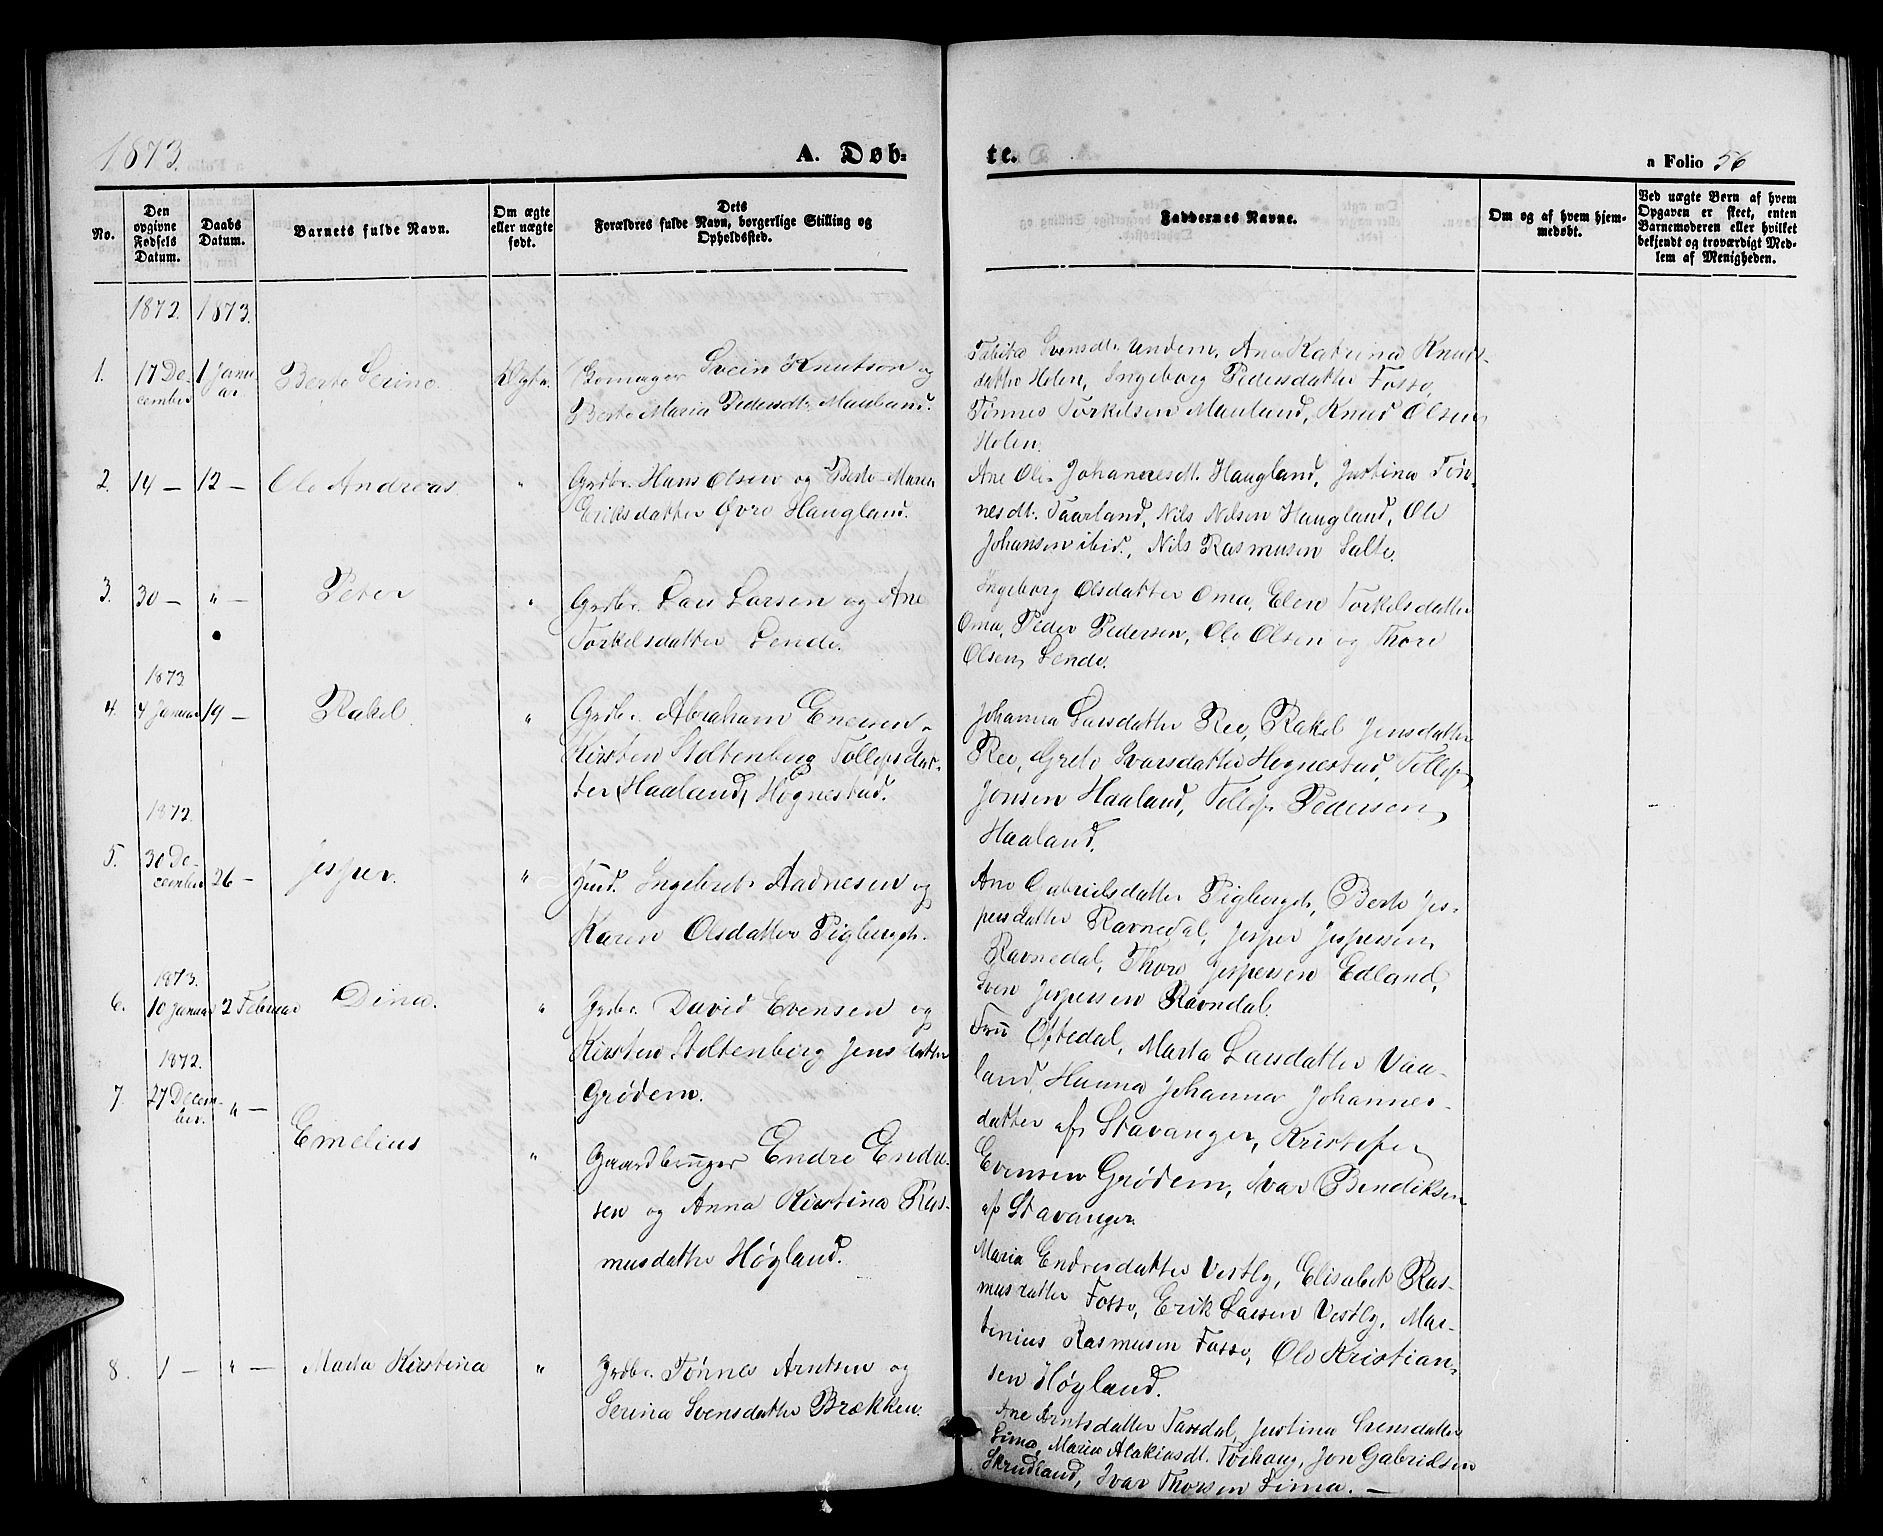 1873.
A. Døb-
te.
a Folio 56
No.
Den opgivne Fødsels Datum.
Daabs Datum.
Barnets fulde Navn.
Om ægte eller uægte født.
Dets Forældres fulde Navn, borgerlige Stilling og Opholdssted.
Faddernes Navne.
Om og af hvem hjemmedøbt.
Ved uægte Børn af hvem Opgaven er skeet, enten Barnemoderen eller hvilket bekjendt og troværdigt Medlem af Menigheden.
1872. 1873.
1. 17 De-
cember
1 Janu-
ar
Berte Serine
Ægte
Svein Knutson og
Berte Maria Pedersdt. Mauland.
Tabita Svensdt. Undem, Ane Katrina Knuds-
datter Helen, Ingeborg Pedersdatter Fosse,
Tønnes Torkelsen Mauland, Knud Olsen
Helen.
2. 14 — 12 —
Ole Andreas
"
Grdbr. Hans Olsen og Berte Maren
Eriksdatter Øvre Haugland.
Ane Oli- Johannesdt. Haugland, Justina Tøn-
nesdt. Taarland, Nils Nilsen Haugland, Ole
Johansen ibid., Nils Rasmusen Salte.
3. 30 — " —
Peter
"
Grdbr. Lars Larsen og Ane
Torkelsdatter Lende.
Ingeborg Olsdatter Oma, Elen Torkelsdatter
Oma, Peder Pedersen, Ole Olsen og Thore
Olsen Lende.
1873
4. 4 Januar 19 —
Rakel.
"
Grdbr. Abraham Enevsen
Kirsten Stoltenberg Tollefsdat-
ter (Haaland) Høgnestad.
Johanna Larsdatter Ree, Rakel Jensdatter
Ree, Grete Ivarsdatter Hognestad, Tollef
Jonsen Haaland, Tollef Pedersen
Haaland.
1872.
5. 30 De-
cember 26 —
Jesper.
"
Ingebret Aadnesen og
Karen Olsdatter Pigberget.
Ane Gabrielsdatter Pigberget, Berte Jes-
persdatter Ravnedal, Jesper Jespersen
Ravnedal, Thore Jespersen Edland,
Sven Jespersen Ravndal.
1873.
6. 10 Januar 2 Februar
Dina.
"
Grdbr. David Evensen og
Kirsten Stoltenberg Jensdatter
Grødem.
Fru Oftedal, Marta Larsdatter Vaa-
land, Hanna Johanna Johannes-
datter af Stavanger, Kristofer
Evensen Grødem, Ivar Bendiksen
af Stavanger.
1872.
7. 27 Decem-
ber. " —
Emelius
"
Gaardbruger Endre Endre-
sen og Anna Kirstina Ras-
musdatter Høyland.
Maria Endresdatter Vestly, Elisabet Ras-
musdatter Fosse, Erik Larsen Vestly, Mar-
tinius Rasmusen Fosse, Ole Kristian-
sen Høyland.
8. 1 — " —
Marta Kirstina
"
Grdbr. Tønnes Arntsen og
Serina Svensdatter Brækken.
Ane Arntsdatter Taksdal, Justina Svensdatter
Lima, Maria Alakiasdt. Torhaug, Jon Gabrielsen
Skrudland, Ivar Thorsen Lima. —